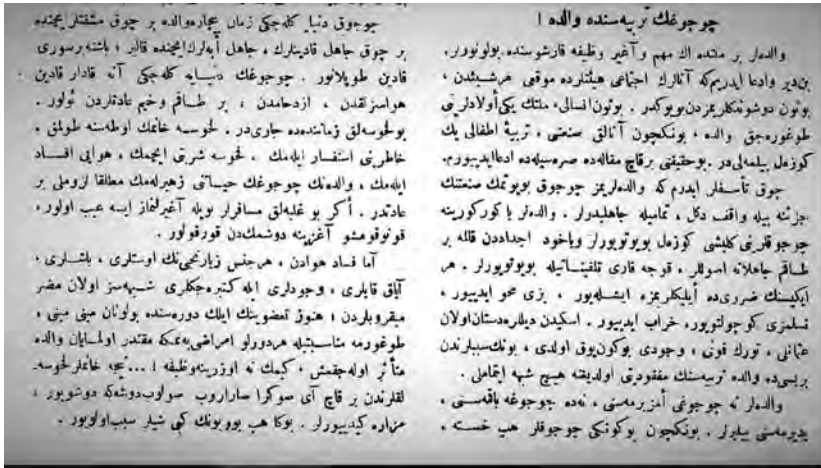 چوجوغك تربیه‌سنده والده !
والده‌لر بر ملتده اك مهم و آغیر وظیفه قارشوسنده بولونورلر.
بن‌دیر وادعا ایدریم‌كه آنالرك اجتماعی هیئتلرده موقعی هرشیئدن ،
بوتون دوشوندكلریمزدن‌بویوكدر . بوتون‌انسالی، ملتك یكی‌أولادلرینی
طوغوره‌جق والده ، بونكچون آنالق صنعتی ، تربیهٔ اطفالی پك
كوزه‌ل بیلمه‌لی‌در .بوحقیقتی برقاچ مقاله‌ده صره‌سیله‌ده ادعاایدییورم.
چوق تأسفلر ایدرم كه والده‌لریمز چوجوق بویوتمك صنعتنك
جزئنه بیله واقف دكل ، تمامیله جاهلیدرلر . والده‌لر یا كوركورینه
چوجوقلرینی كلیشی كوزه‌ل بویوتویورلر ویاخود اجداددن قالمه بر
طـاقم جاهلانه اصوللر ، قوجه قاری تلقینـاتیله بویوتویورلر . هر
ایكیسنك ضرری‌ده أیلیكلریمزه ایشـله‌یور ، بزی محو ایدییور ،
نسلمزی كوچولتویور، خراب ایدییور . اسكیدن دیللرده‌دستان‌اولان
عثمانلی ، تورك قوتی ، وجودی بوكون‌یوق اولدی ، بونك‌سببلرندن
بریسی‌ده والده تربیه‌سنك مفقودیتی اولدیغنه هیچ شبهه ایتمه‌ملی .
والده‌لر نه چوجوغی أمزیرمه‌سنی ، نه‌ده چوجوغه باقمه‌سـنی ،
یدیرمه‌سنی بیلیرلر . بونكچون بوكونكی چوجوقلر هپ خسته ،
چوجوق دنیایه كله‌جكی زمان بیچاره‌والده بر چوق مشقتلر ایچنده
بر چوق جاهل قادینلرك ، جاهل أبه‌لرك‌ایچنده قالیر ، باشنه‌برسوری
قادین طوپلانور . چوجوغك دنیـایه كله‌جكی آنه قادار قادین
هواسزلقدن ، ازدحامدن ، بر طـاقم وخیم عادتلردن ئولور .
بولحوسه‌لق زماننده‌ده جاری‌در . لحوسه خانمك اوطه‌سنه طولمق ،
خاطرینی استفسار ایله‌مك . لحوسه شربتی ایچمك ، هوایی افسـاد
ایله‌مك ، والده‌نك چوجوغك حیـاتنی زهیرله‌مك مطلقا لزوملی بر
عادتدر . أكر بو غلبه‌لق مسافرلر بویله آغیرلنماز ایسه عیب اولور ،
قونوقومشو آغزینه دوشمك‌دن قورقولور .
آما فساد هوادن ، هرجنس زیارتجی‌نك اوستلری ، باشلری ،
آیاق قابلری ، وجودلری ایله كتیره‌جكلری شـبهه‌سز اولان مضر
میقروبلردن ؛ هنوق تعضوینك ایلك دوره‌سنده بولونان مینی مینی ،
طوغورمه مناسبتیله هردورلو امراضی‌یه‌نمكه مقتدر اولمـایان والده
متأثر اوله‌جقمش ، كیمك نه اوزرینه‌وظیفه ! ... نیجه خانملر لحوسه‌-
لقلرندن بر قاچ آی صوكرا صاراروب صولوب‌دوشه‌كه دوشویور ،
مزاره كیدییورلر . بوكا هپ بوبونك كبی شیلر سبب‌اولویور .